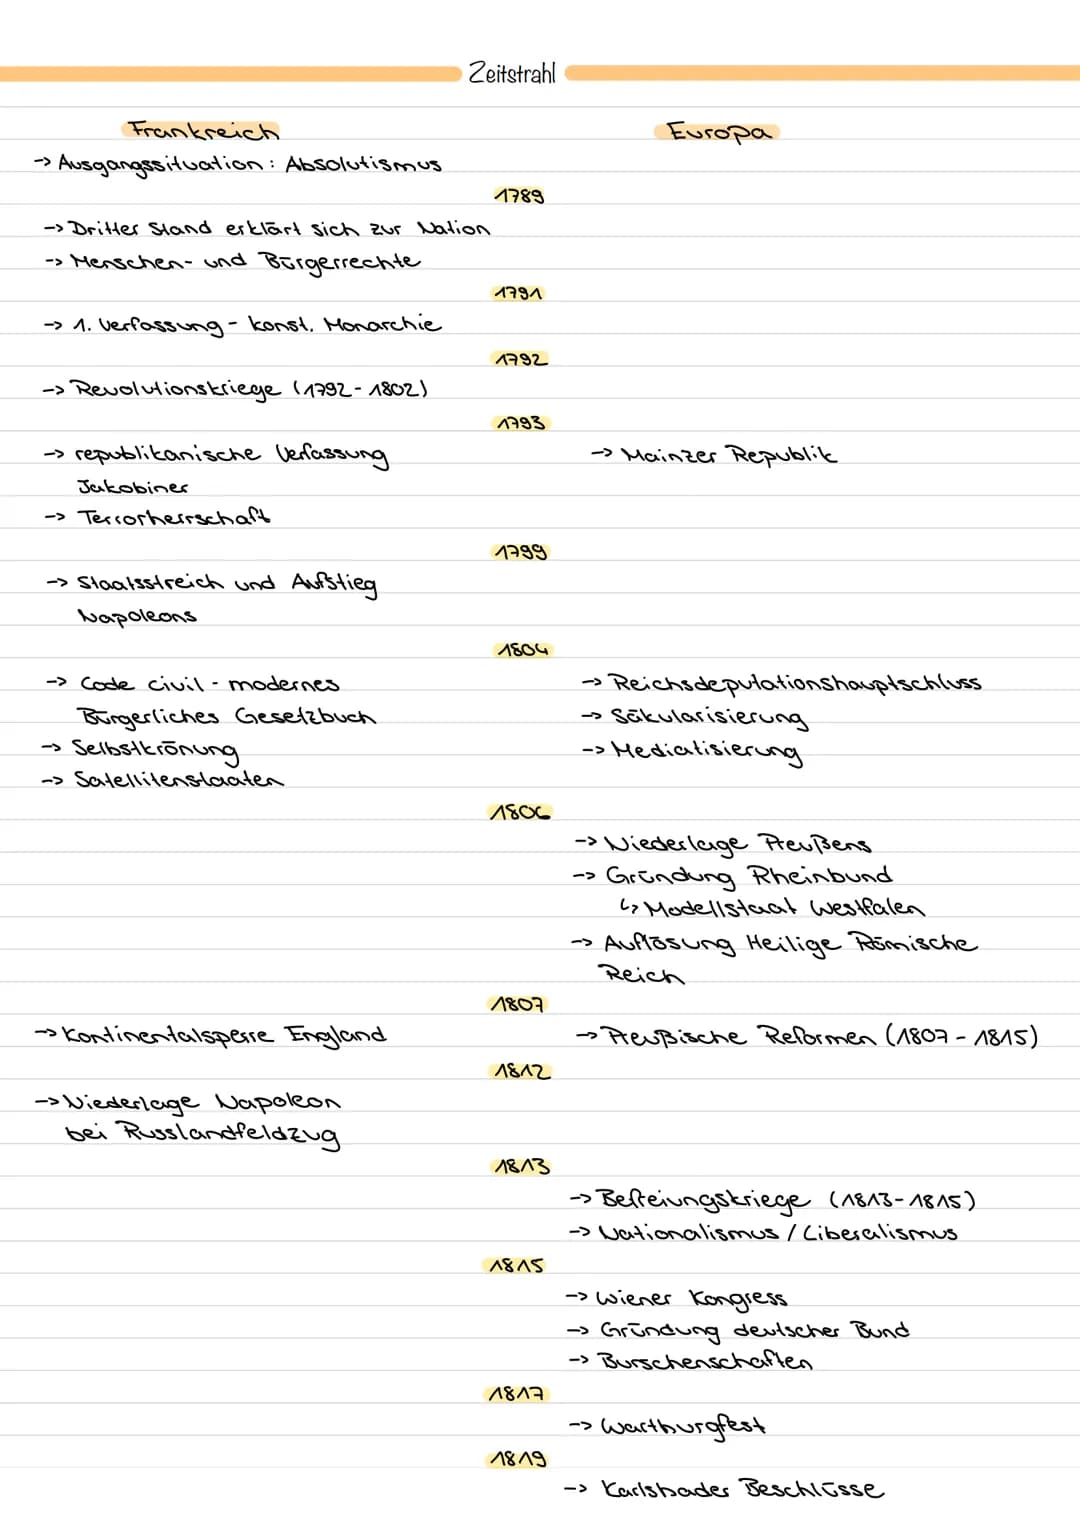 Zeitstrahl
Frankreich
Europa
-> Ausgangssituation: Absolutismus
1789
-> Dritter Stand erklärt sich zur Nation
-> Menschen- und Bürgerrechte
1791
-> 1. Verfassung - konst. Monarchie
1792
-> Revolutionskriege (1792-1802)
1793
-> republikanische Verfassung
-> Mainzer Republik
Jakobiner
-> Terrorherrschaft
1799
-> Staatsstreich und Aufstieg
Napoleons
1804
-> Code civil - modernes
-> Reichsdeputationshauptschluss
Bürgerliches Gesetzbuch
-> Säkularisierung
-> Selbstkrönung
-> Mediatisierung
-> Satellitenstaaten
1806
-> Niederlage Preußens
-> Gründung Rheinbund
↳ Modellstaat Westfalen
-> Auflösung Heilige Römische
Reich
1807
-> Kontinentalsperre England
-> Preußische Reformen (1807-1815)
1812
-> Niederlage Napoleon
bei Russlandfeldzug
1813
-> Befreiungskriege (1813-1815)
-> Nationalismus / Liberalismus
1815
-> Wiener Kongress
-> Gründung deutscher Bund
-> Burschenschaften
1817
-> Wartburgfest
1819
-> Karlsbader Beschlüsse